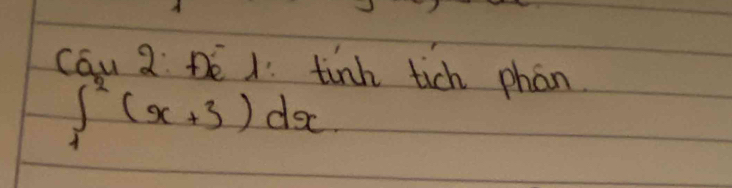 Câu 2: Đề 1: tính tích phân.
∫₁² (x+3) dx.